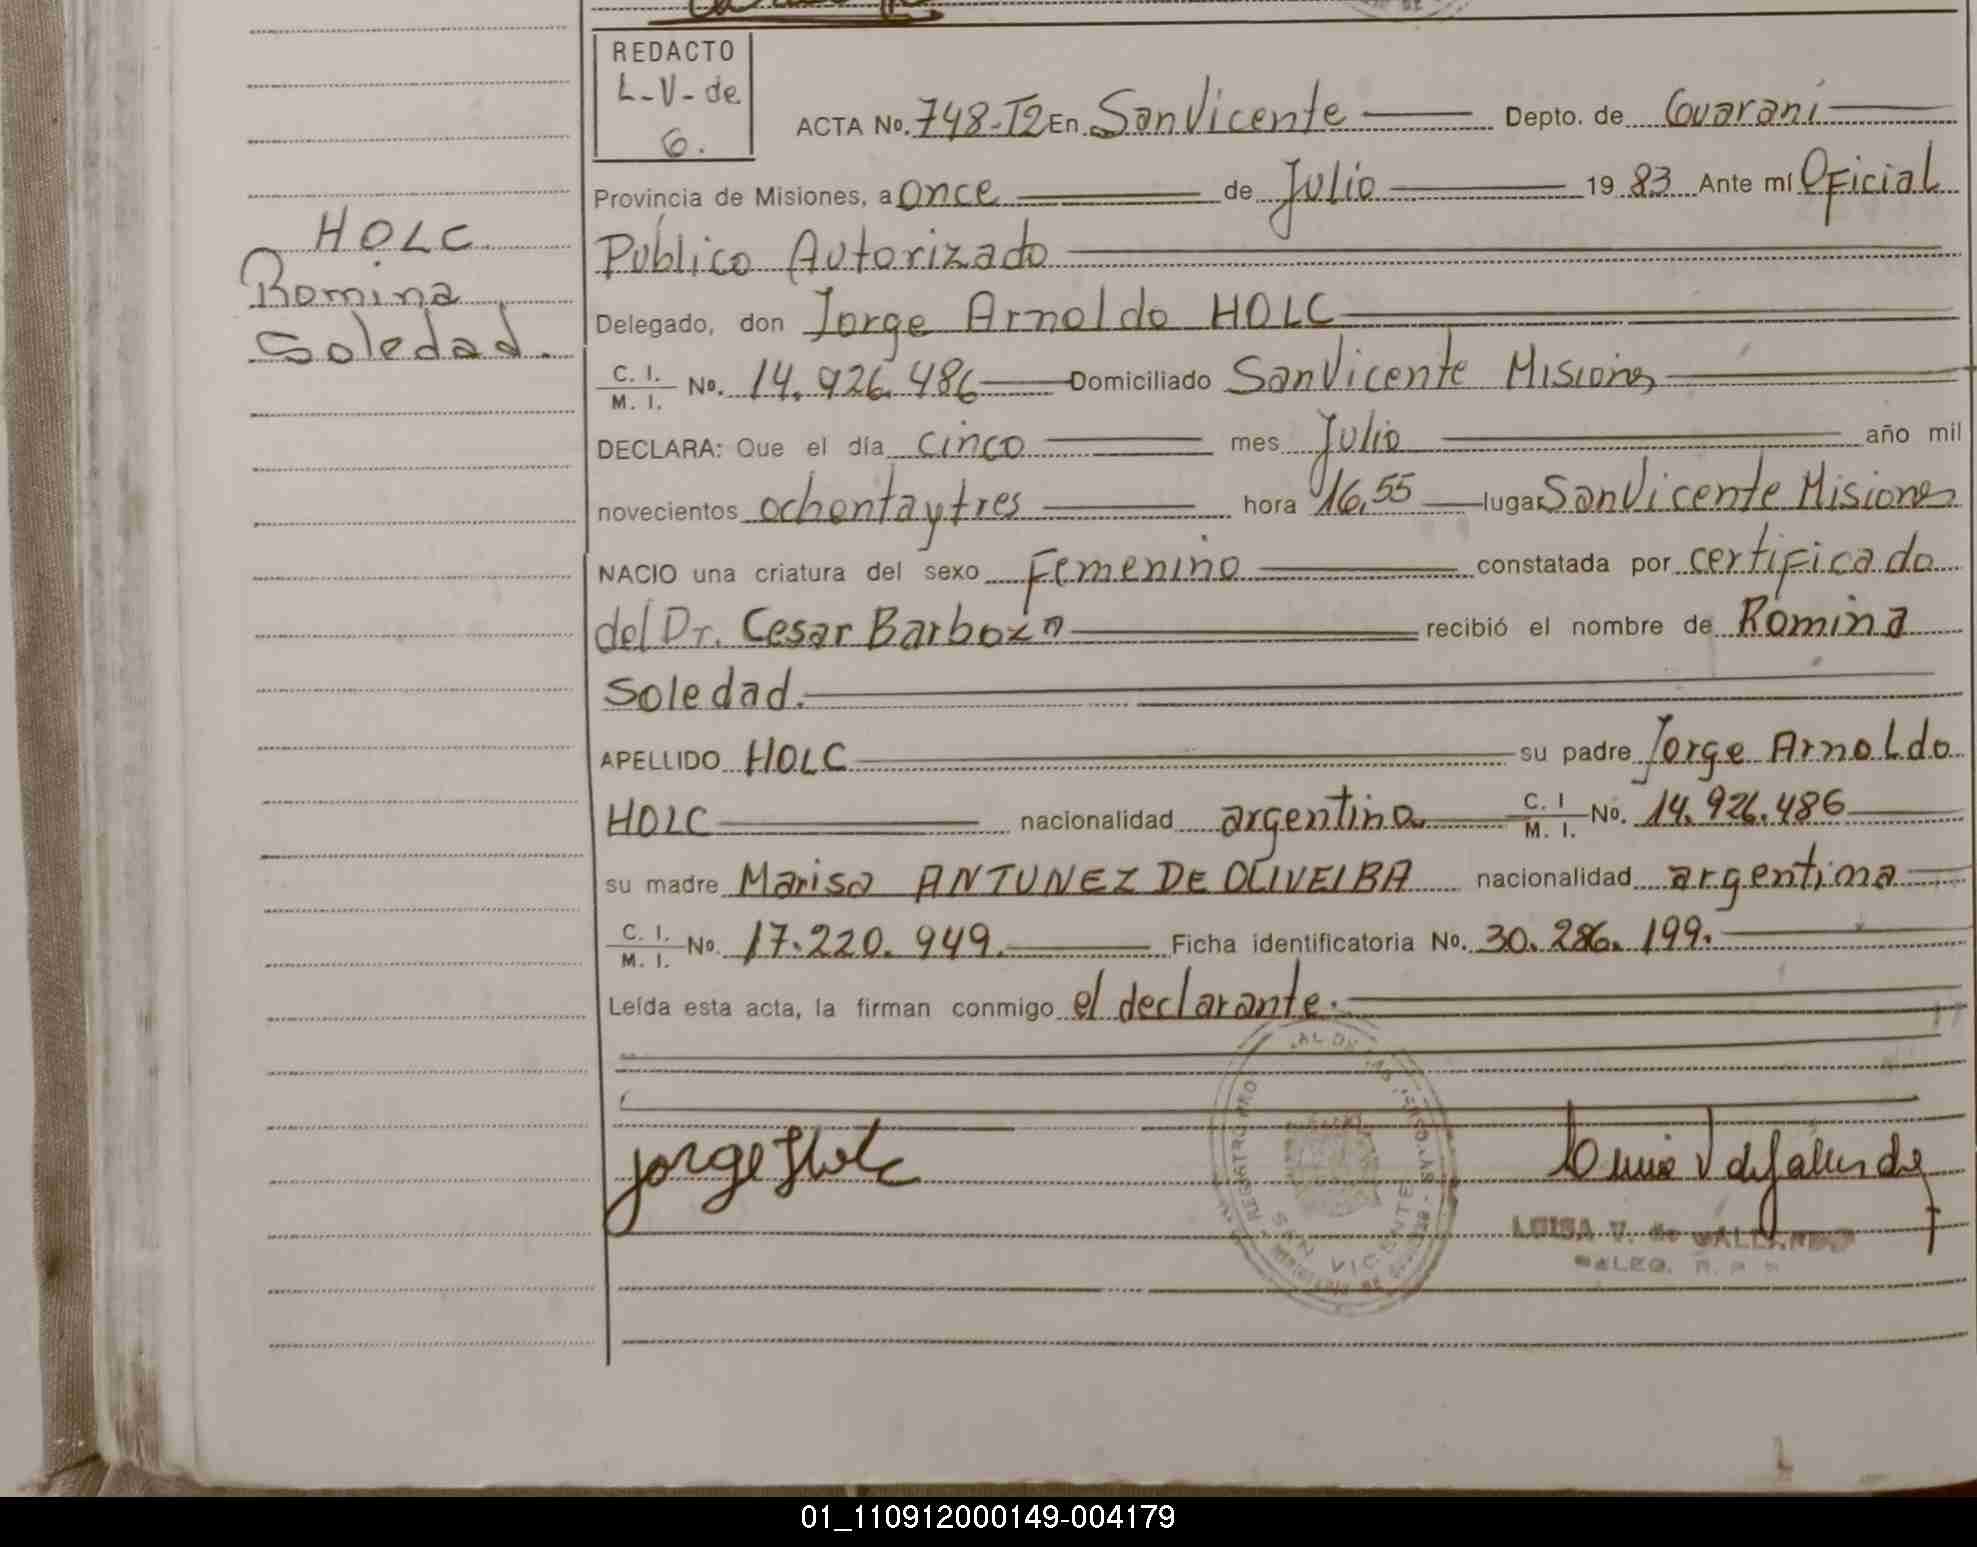 REDACTO
L-V-de
G.
ACTA No. 748-T2 En San Vicente Depto. de Guarani
Provincia de Misiones, a once de Julio 19 83 Ante mí Oficial
Público Autorizado
Delegado, don Jorge Arnoldo HOLC
C. I. M. I. No. 14.926.486 Domiciliado San Vicente Misiones
DECLARA: Que el día cinco mes Julio año mil
novecientos ochenta y tres hora 16,55 lugar San Vicente Misiones
NACIO una criatura del sexo Femenino constatada por certificado
del Dr. Cesar Barboza recibió el nombre de Romina
Soledad.
APELLIDO HOLC su padre Jorge Arnoldo
HOLC nacionalidad argentina C. I M. I. No. 14.926.486
su madre Marisa ANTUNEZ DE OLIVEIRA nacionalidad argentina
C. I. M. I. No. 17.220.949. Ficha identificatoria No. 30.286.199.
Leída esta acta, la firman conmigo el declarante.
HOLC
Romina
Soledad.
Jorge Holc
LUISA V. de
SAN VICENTE
01_110912000149-004179